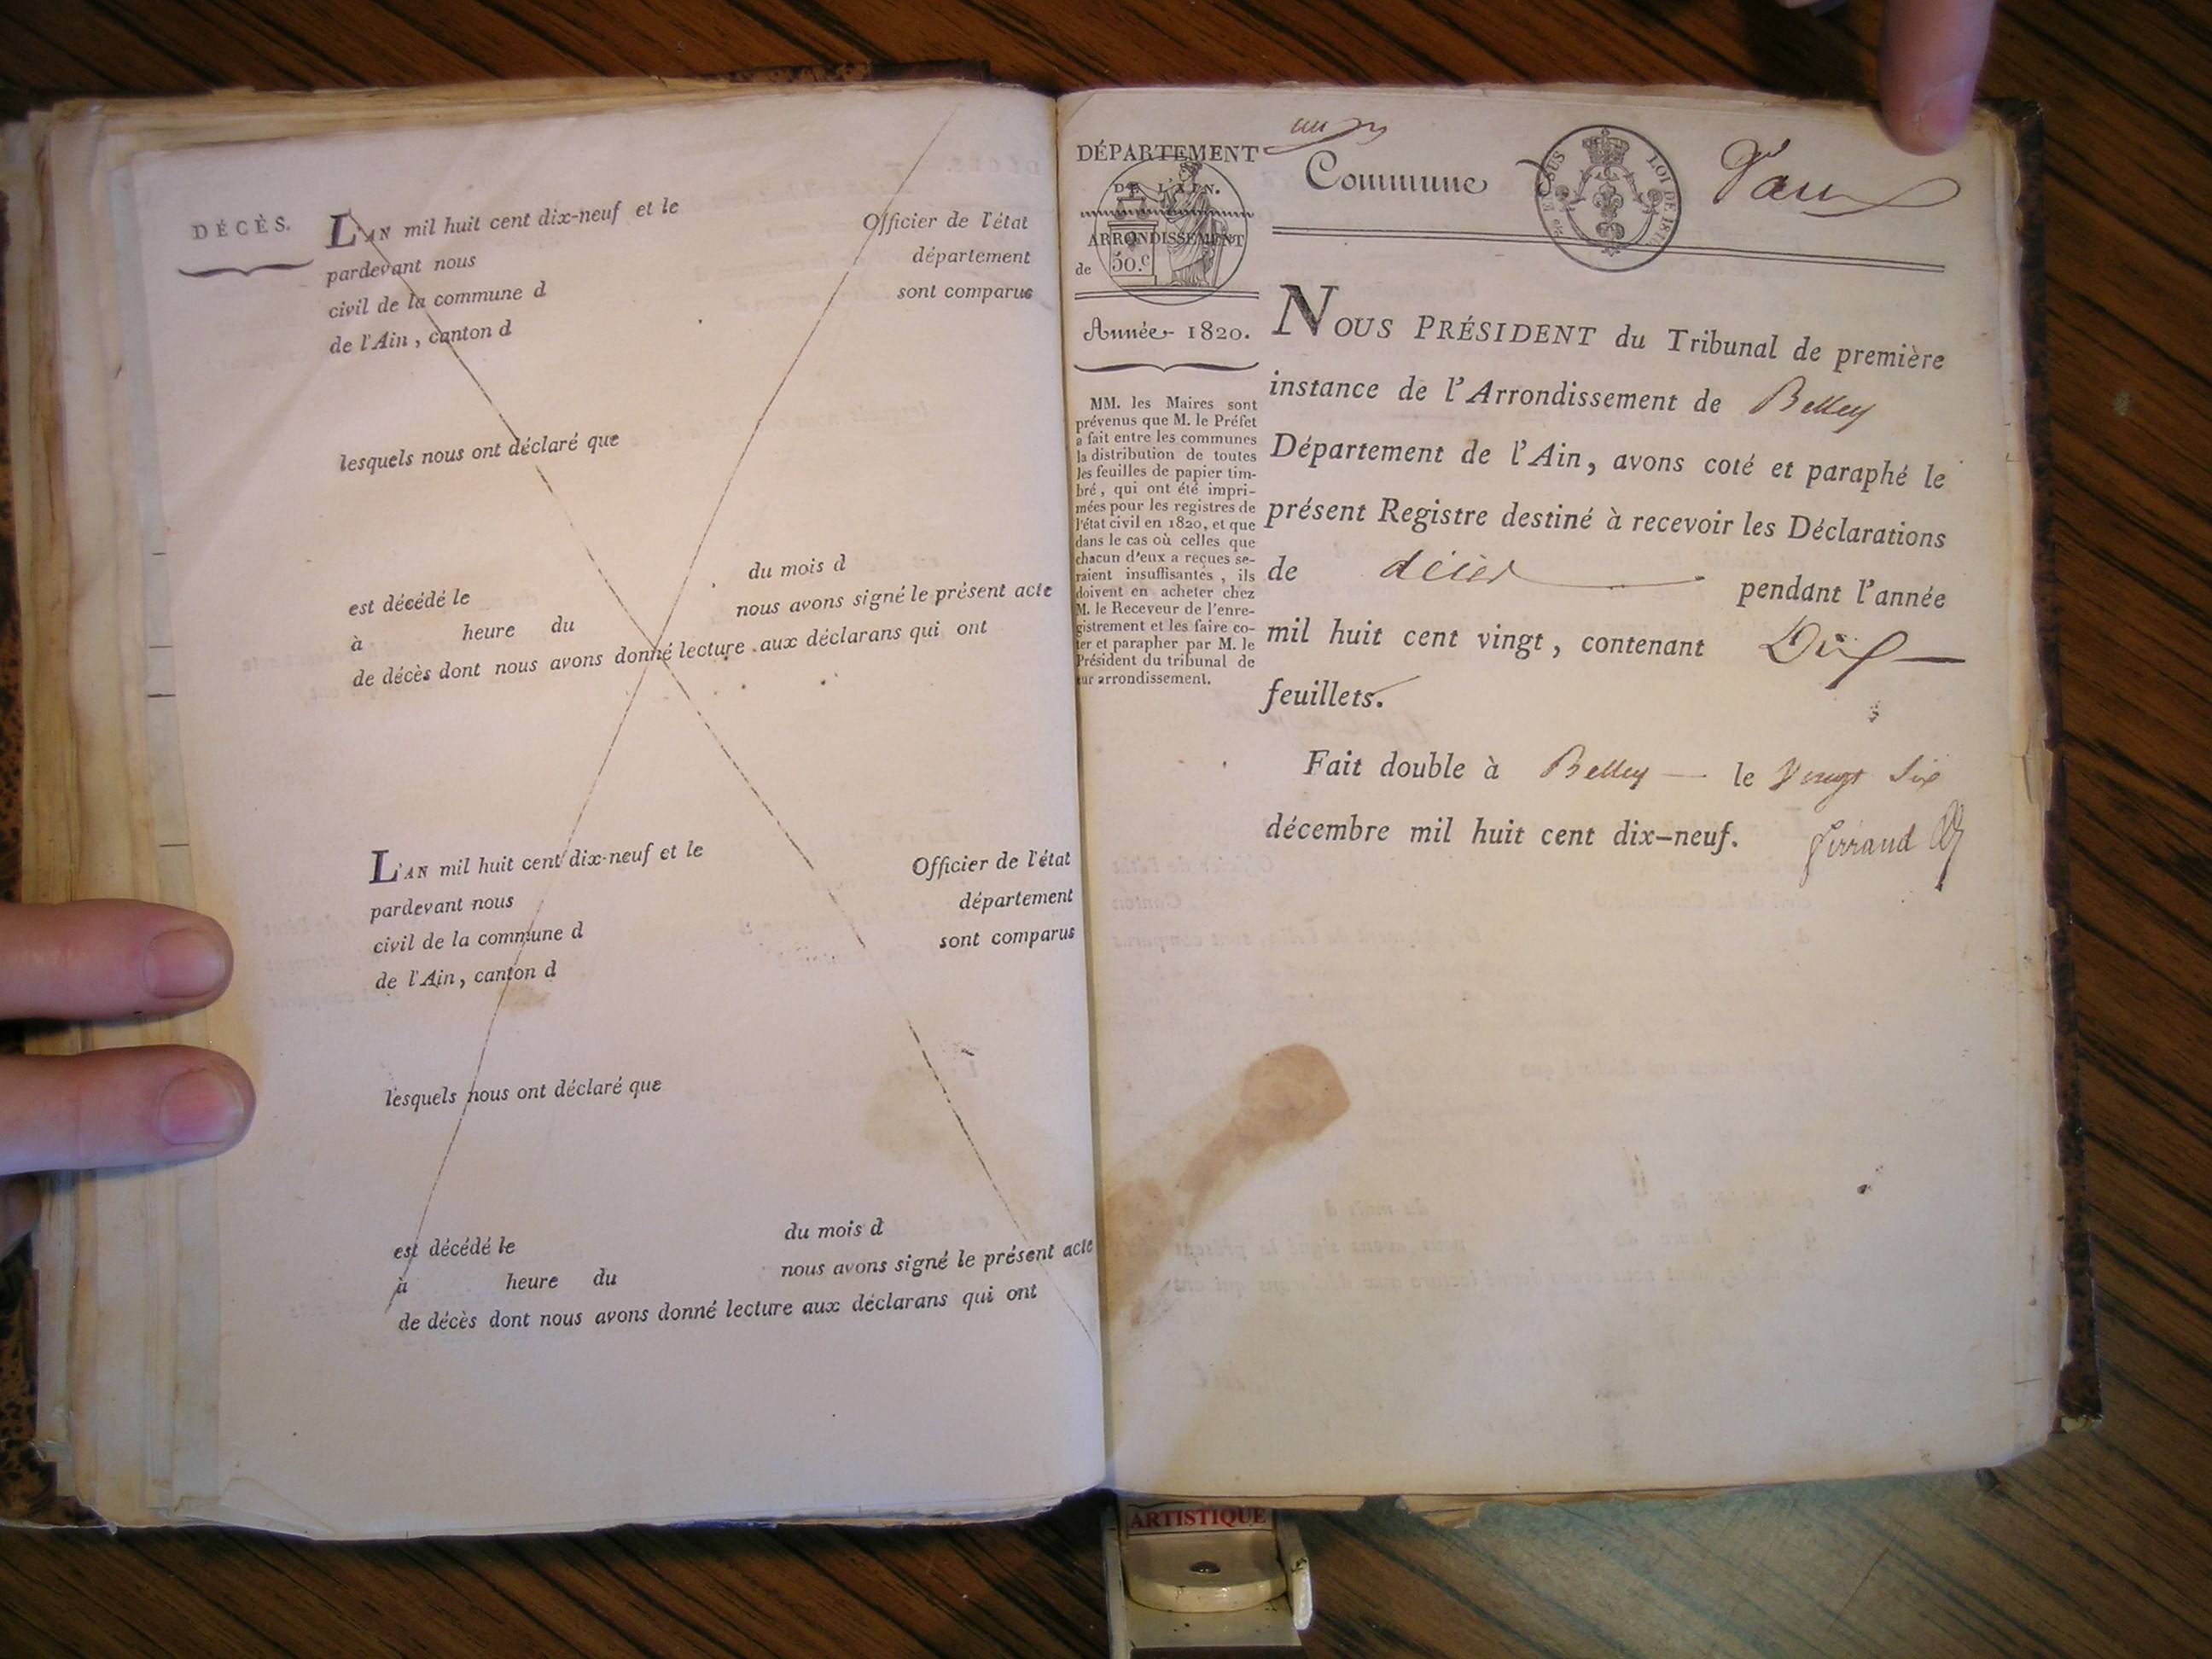 DÉCÈS.
L'AN mil huit cent dix-neuf et le
pardevant nous Officier de l'état
civil de la commune d département
de l'Ain, canton d sont comparus
lesquels nous ont déclaré que
est décédé le du mois d
à heure du nous avons signé le présent acte
de décès dont nous avons donné lecture aux déclarans qui ont
L'AN mil huit cent dix-neuf et le
pardevant nous Officier de l'état
civil de la commune d département
de l'Ain, canton d sont comparus
lesquels nous ont déclaré que
est décédé le du mois d
à heure du nous avons signé le présent acte
de décès dont nous avons donné lecture aux déclarans qui ont
DÉPARTEMENT
DE L'AIN.
ARRONDISSEMENT
de
50.c
Année 1820.
MM. les Maires sont
prévenus que M. le Préfet
a fait entre les communes
la distribution de toutes
les feuilles de papier tim-
bré, qui ont été impri-
mées pour les registres de
l'état civil en 1820, et que
dans le cas où celles que
chacun d'eux a reçues se-
raient insuffisantes, ils
doivent en acheter chez
M. le Receveur de l'enre-
gistrement et les faire co-
ter et parapher par M. le
Président du tribunal de
leur arrondissement.
Commune Vau
EN SUS
LOI DE 181
NOUS PRÉSIDENT du Tribunal de première
instance de l'Arrondissement de Belley
Département de l'Ain, avons coté et paraphé le
présent Registre destiné à recevoir les Déclarations
de décès pendant l'année
mil huit cent vingt, contenant Dix
feuillets.
Fait double à Belley le Vingt Six
décembre mil huit cent dix-neuf. Perraud
ARTISTIQUE